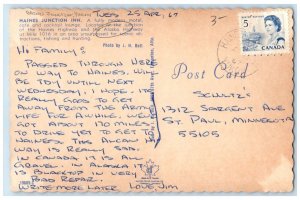 TUES 25 APR, 67
HAINES JUNCTION INN. A fully modern motel,
cafe and cocktail lounge. Located at the junction
of the Haines Highway and the Alaska Highway
at Mile 1016 in an area
tractions, fishing and hunting.
Photo by J. H. Bell.
3-
CANADA
5
Post Card
HI FAMILY!
PASSED THROUGH HERE
ON WAY TO HAINES. WILL
BE TDY UNTIL NEXT
WEDNESDAY, I HOPE. IT
REALLY GOES TO GET
AWAY FROM THE ARMY
LIFE FOR AWHILE. WE'VE
GOT ABOUT 170 MILES
TO DRIVE YET TO GET
TO HAINES. THIS ALCAN
WAY IS REALLY BAD.
IN CANADA IT IS ALL
GRAVEL. IN ALASKA IT
IS BLACKTOP IN VERY
BAD REPAIR.
WRITE MORE LATER LOVE, JIM
SCHULTZ'
1312 SARGENT AVE
ST. PAUL, MINNESOTA
55105